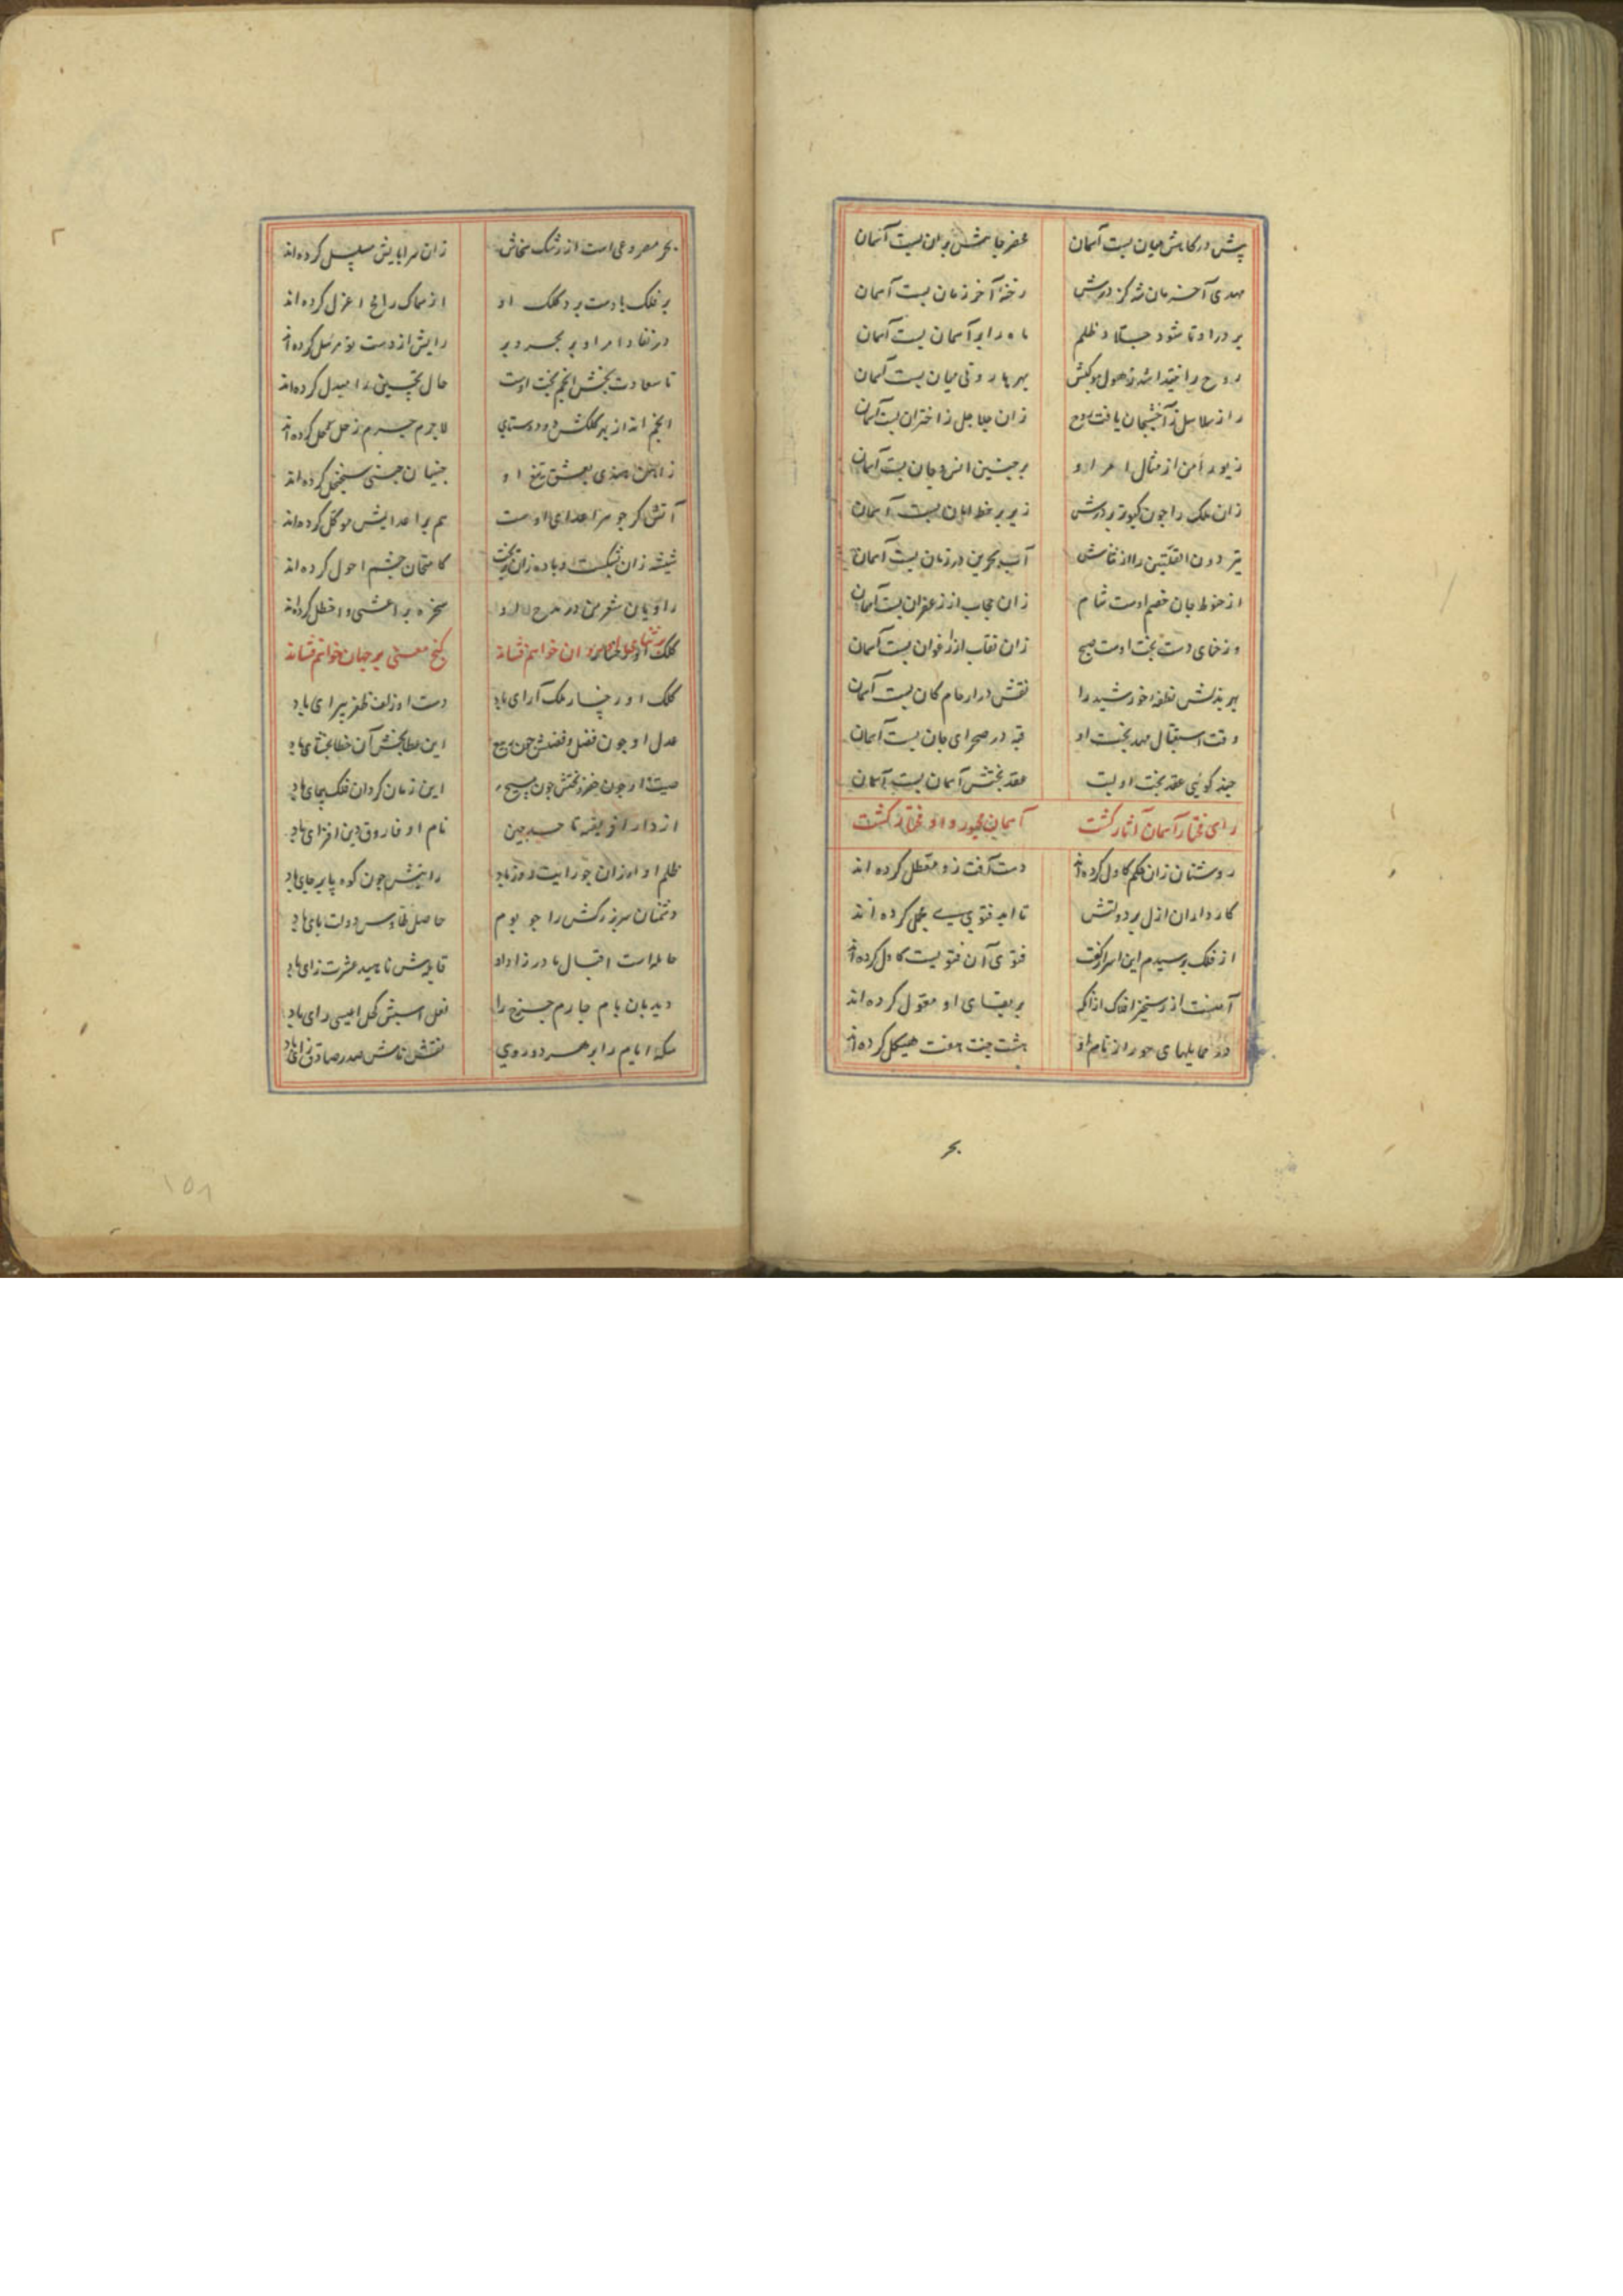 پیش درکاهش میان بست آسمان عمر جاهش بران بست آسمان
مهدی آخر زمان شد کز درش رخنهٔ آخر زمان بست آسمان
بر در او تا شود جلاد ظلم ماه را بر آسمان بست آسمان
زان جلاجل ز اختران بست آسمان
زیور امن از مثال امر او بر جبین انس و جان بست آسمان
زان ملک را چون کبوتر بر درش زیر پر خط امان بست آسمان
آب بحرین در زمان بست آسمان
از حنوط جان خصم اوست شام زان حجاب از زعفران بست آسمان
وز حنای دست بخت اوست صبح زان نقاب از ارغوان بست آسمان
بهر بذلش نطفهٔ خورشید را نقش در ارحام کان بست آسمان
وقت استقبال مهد بخت او قبه در صحرای جان بست آسمان
چند کوئی عقد بخت او که بست عقد بختش آسمان بست آسمان
رای مختار آسمان آثار کشت آسمان مجبور و او مختار کشت
روشنان زان حکم کاول کرده‌اند دست آفت زو معطل کرده اند
کارداران ازل بر دولتش تا ابد فتوی مسجل کرده اند
از فلک پرسیدم این اسرار گفت فتوی آن فتویست کاول کرده‌اند
بر بقای او معول کرده اند
در حمایلهای حور از نام او هشت جنت هفت هیکل کرده‌اند
بحر
بحر مصروعی است از رشک سخاش زان سراپایش مسلسل کرده‌اند
بر فلک با دست برد کلک او از سماک رامح اعزل کرده‌اند
در نفاذ امر او بر بحر و بر رایش از دست تو مرسل کرده‌اند
تا سعادت بخش انجم بخت اوست حال نحسین را مبدل کرده‌اند
لاجرم جرم زحل حل کرده‌اند
زآهن هندی بعشق تیغ او چینیان چینی سجنجل کرده‌اند
هم بر اعدایش موکل کرده‌اند
شیشه زان بشکست و باده زان بریخت کامتحان چشم احول کرده‌اند
راویان شعر من در مدح او سخره بر اعشی و اخطل کرده‌اند
روان خواهم فشاند کنج معنی بر جهان خواهم فشاند
کلک او رخسار ملک آرای باد دست او زلف ظفر پیرای باد
عدل او چون فضل و فضلش چون ربیع این عطابخش آن خطابخشای باد
صیت او چون خضر و بختش چون مسیح این زمان کردان فلک پیمای باد
از دار افریقیه تا حد چین نام او فاروق دین افزای باد
رایتش چون کوه پا بر جای باد
دشمنان سر بزرکش را چو بوم حاصل طاوس دولت پای باد
حامله است اقبال مادر زاد او قابلش ناهید عشرت زای باد
دیدبان بام چارم چرخ را نعل اسبش کحل عیسی رای باد
سکهٔ ایام را بر هر دو روی نقش نامش صدر صادق رای باد
۱۵۸